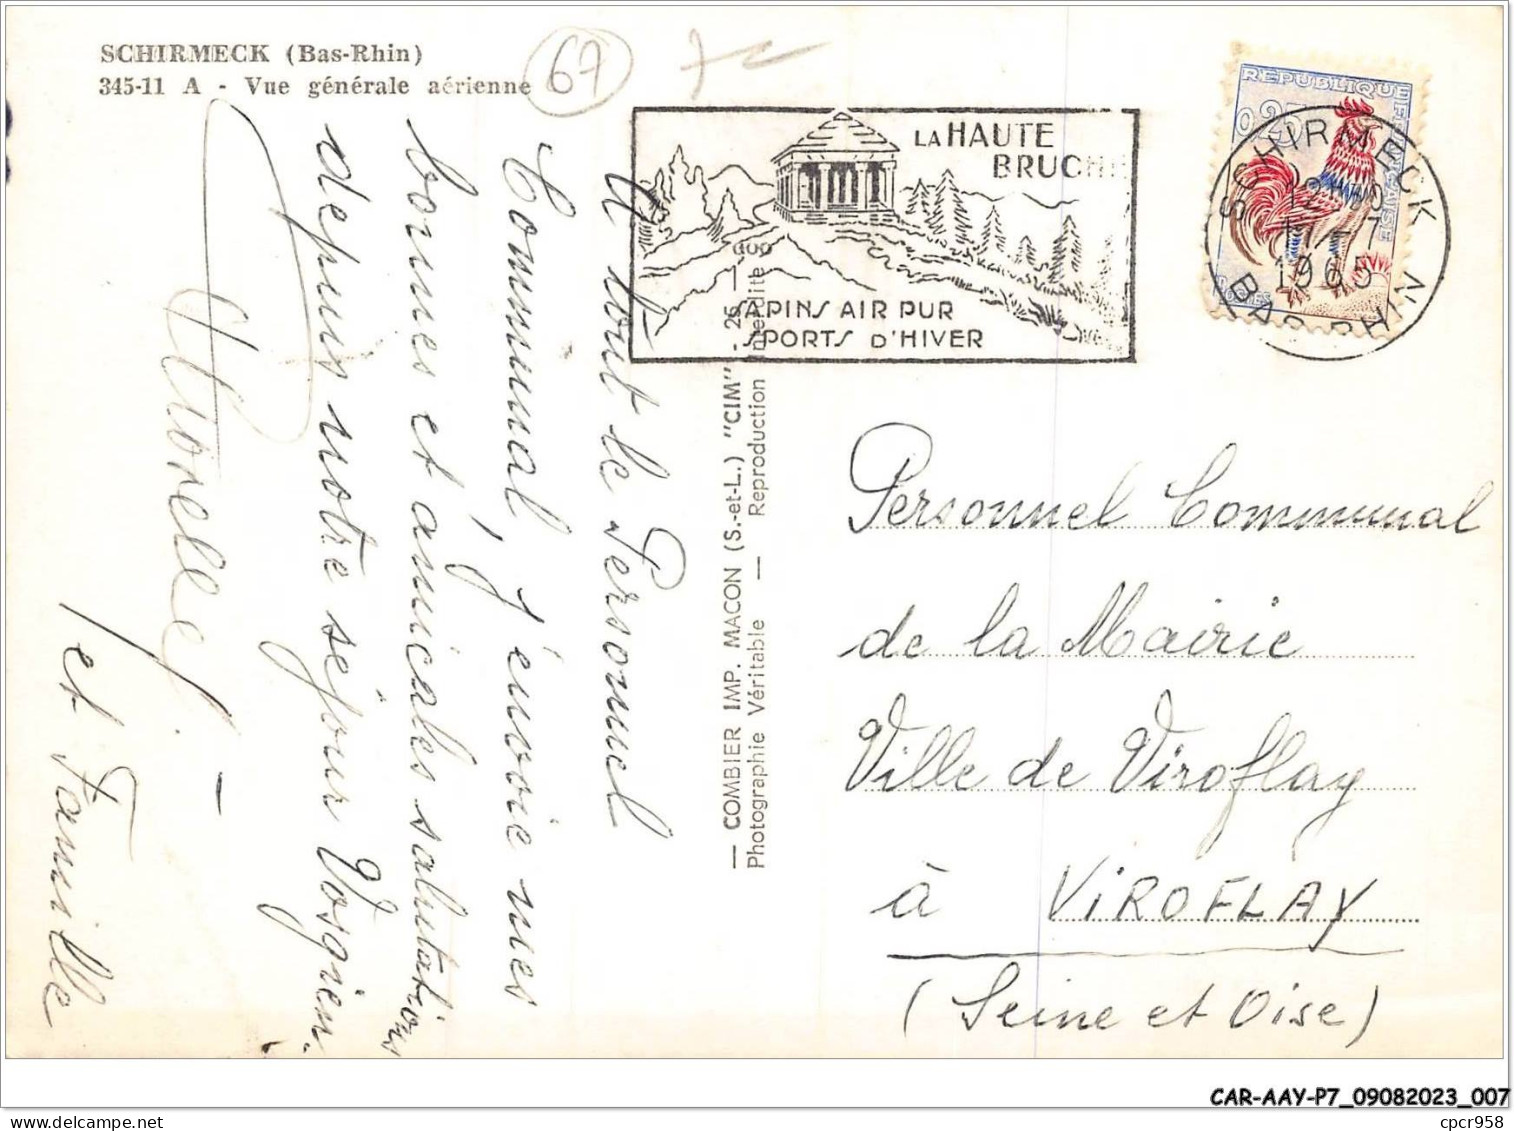 SCHIRMECK (Bas-Rhin)
345-11 A - Vue générale aérienne
67
LA HAUTE
BRUCHE
SAPINS AIR PUR
SPORTS D'HIVER
REPUBLIQUE FRANÇAISE
0,25
POSTES
SCHIRMECK
1965
BAS-RHIN
A tout le Personnel
Communal, j'envoie mes
bonnes et amicales salutations
depuis notre séjour Vosgien.
et Famille
— COMBIER IMP. MACON (S.-et-L.) "CIM"
Photographie Véritable — Reproduction interdite
Personnel Communal
de la Mairie
Ville de Viroflay
à VIROFLAY
(Seine et Oise)
CAR-AAY-P7_09082023_007
www.delcampe.net
cpcr958